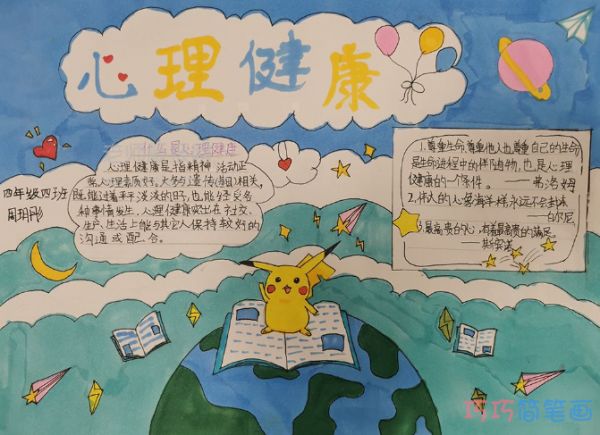 心理健康
什么是心理健康
心理健康是指精神、活动正
常、心理素质好。大约遗传(相关,
既能过着平平淡淡的日,也能经受各
种事情发生。心理健康突出在社交、
生产、生活上能与其它人保持较好的
沟通或配合。
四年级四班
1.尊重生命、尊重他人也尊重自己的生命,
是生命进程中的伴随物,也是心理
健康的一个条件。——弗洛姆
2.伟大的心像海洋一样永远不会封冻
——白尔尼
3.最高贵的心,有着最高贵的满足。
——斯宾诺
巧巧简笔画